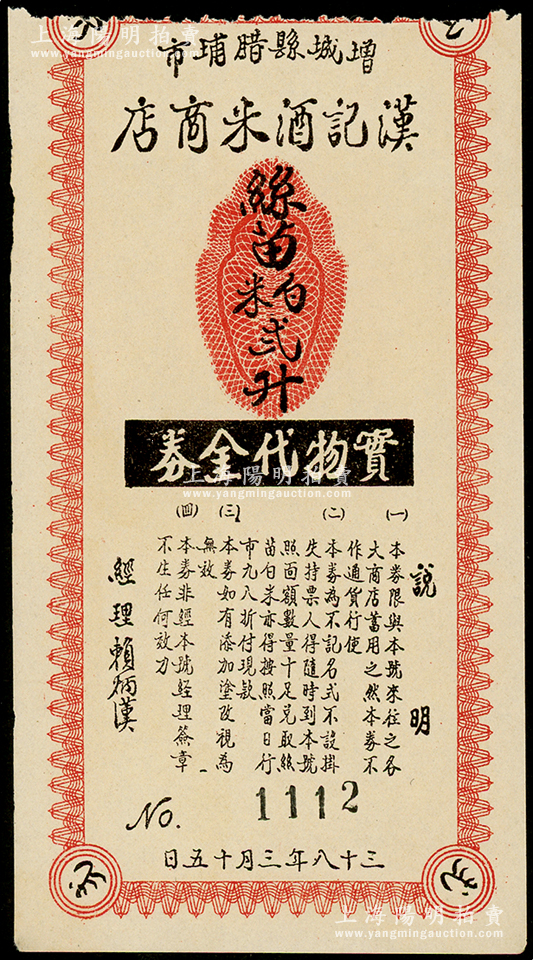 上海陽明拍賣
www.yangmingauction.com
增城縣腊埔市
漢記酒米商店
絲苗
白米
弍升
實物代金券
上海陽明拍賣
www.yangmingauction.com
說明
(一)
本券限與本號來往之各
大商店蓄用之然本券不
作通貨行使
(二)
本券為不記名式不設掛
失持票人得隨時到本號
照面額數量十足兑取絲
苗白米亦得按照當日行
市九八折付現款
(三)
本券如有添加塗改視為
無效
(四)
本券非經本號經理簽章
不生任何效力
經理 賴炳漢
No.
1112
三十八年三月十五日
上海陽明拍賣
www.yangmingauction.com